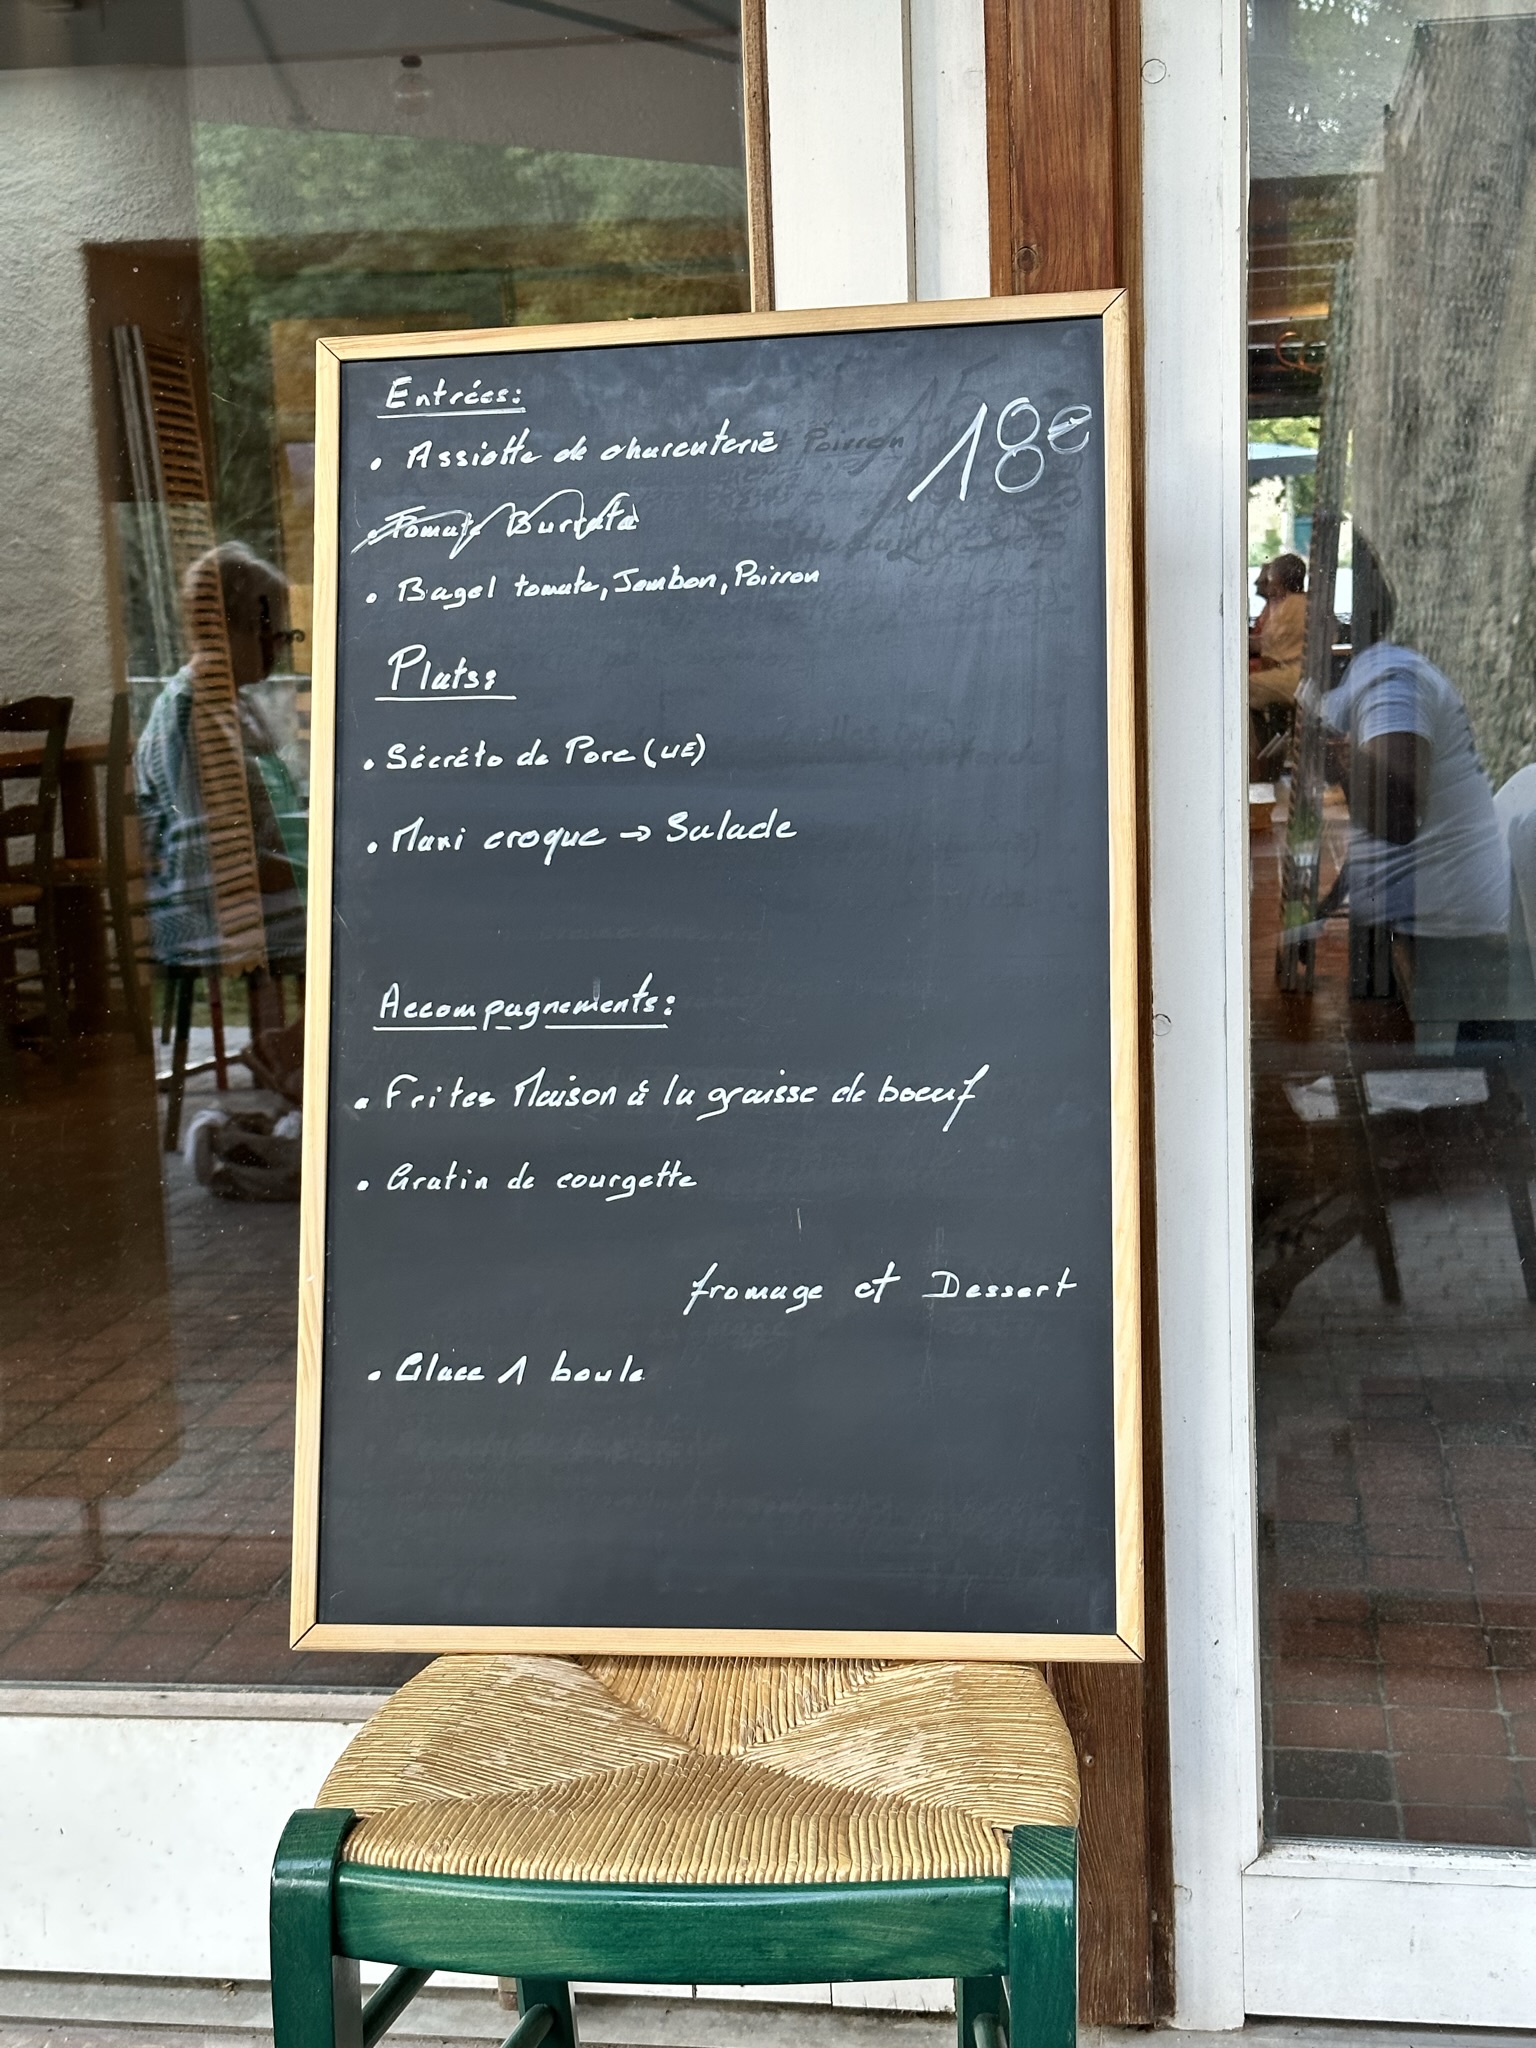 Entrées:
18€
• Assiette de charcuterie
• Tomate Burrata
• Bagel tomate, Jambon, Poivron
Plats:
• Sécréto de Porc (UE)
• Maxi croque → Salade
Accompagnements:
• Frites Maison à la graisse de boeuf
• Gratin de courgette
fromage et Dessert
• Glace 1 boule